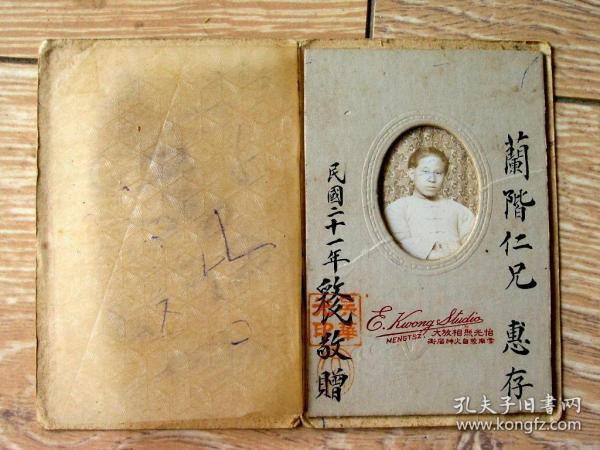 蘭階仁兄 惠存
民國二十一年 敬贈
E. Kwong Studio
MENGTSZ
怡光照相放大
孔夫子旧书网
www.kongfz.com